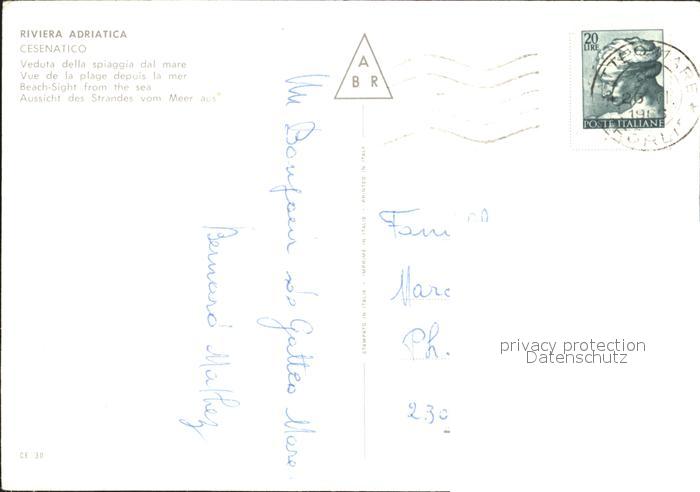 RIVIERA ADRIATICA
CESENATICO
Veduta della spiaggia dal mare
Vue de la plage depuis la mer
Beach-Sight from the sea
Aussicht des Strandes vom Meer aus
A
B R
20
LIRE
POSTE ITALIANE
Un Bonjour de Gatteo Mare.
Bernard Mathez
STAMPATO IN ITALIA - IMPRIMÉ EN ITALIE - PRINTED IN ITALY
Fami
Marc
Ph.
230
privacy protection
Datenschutz
CE 30